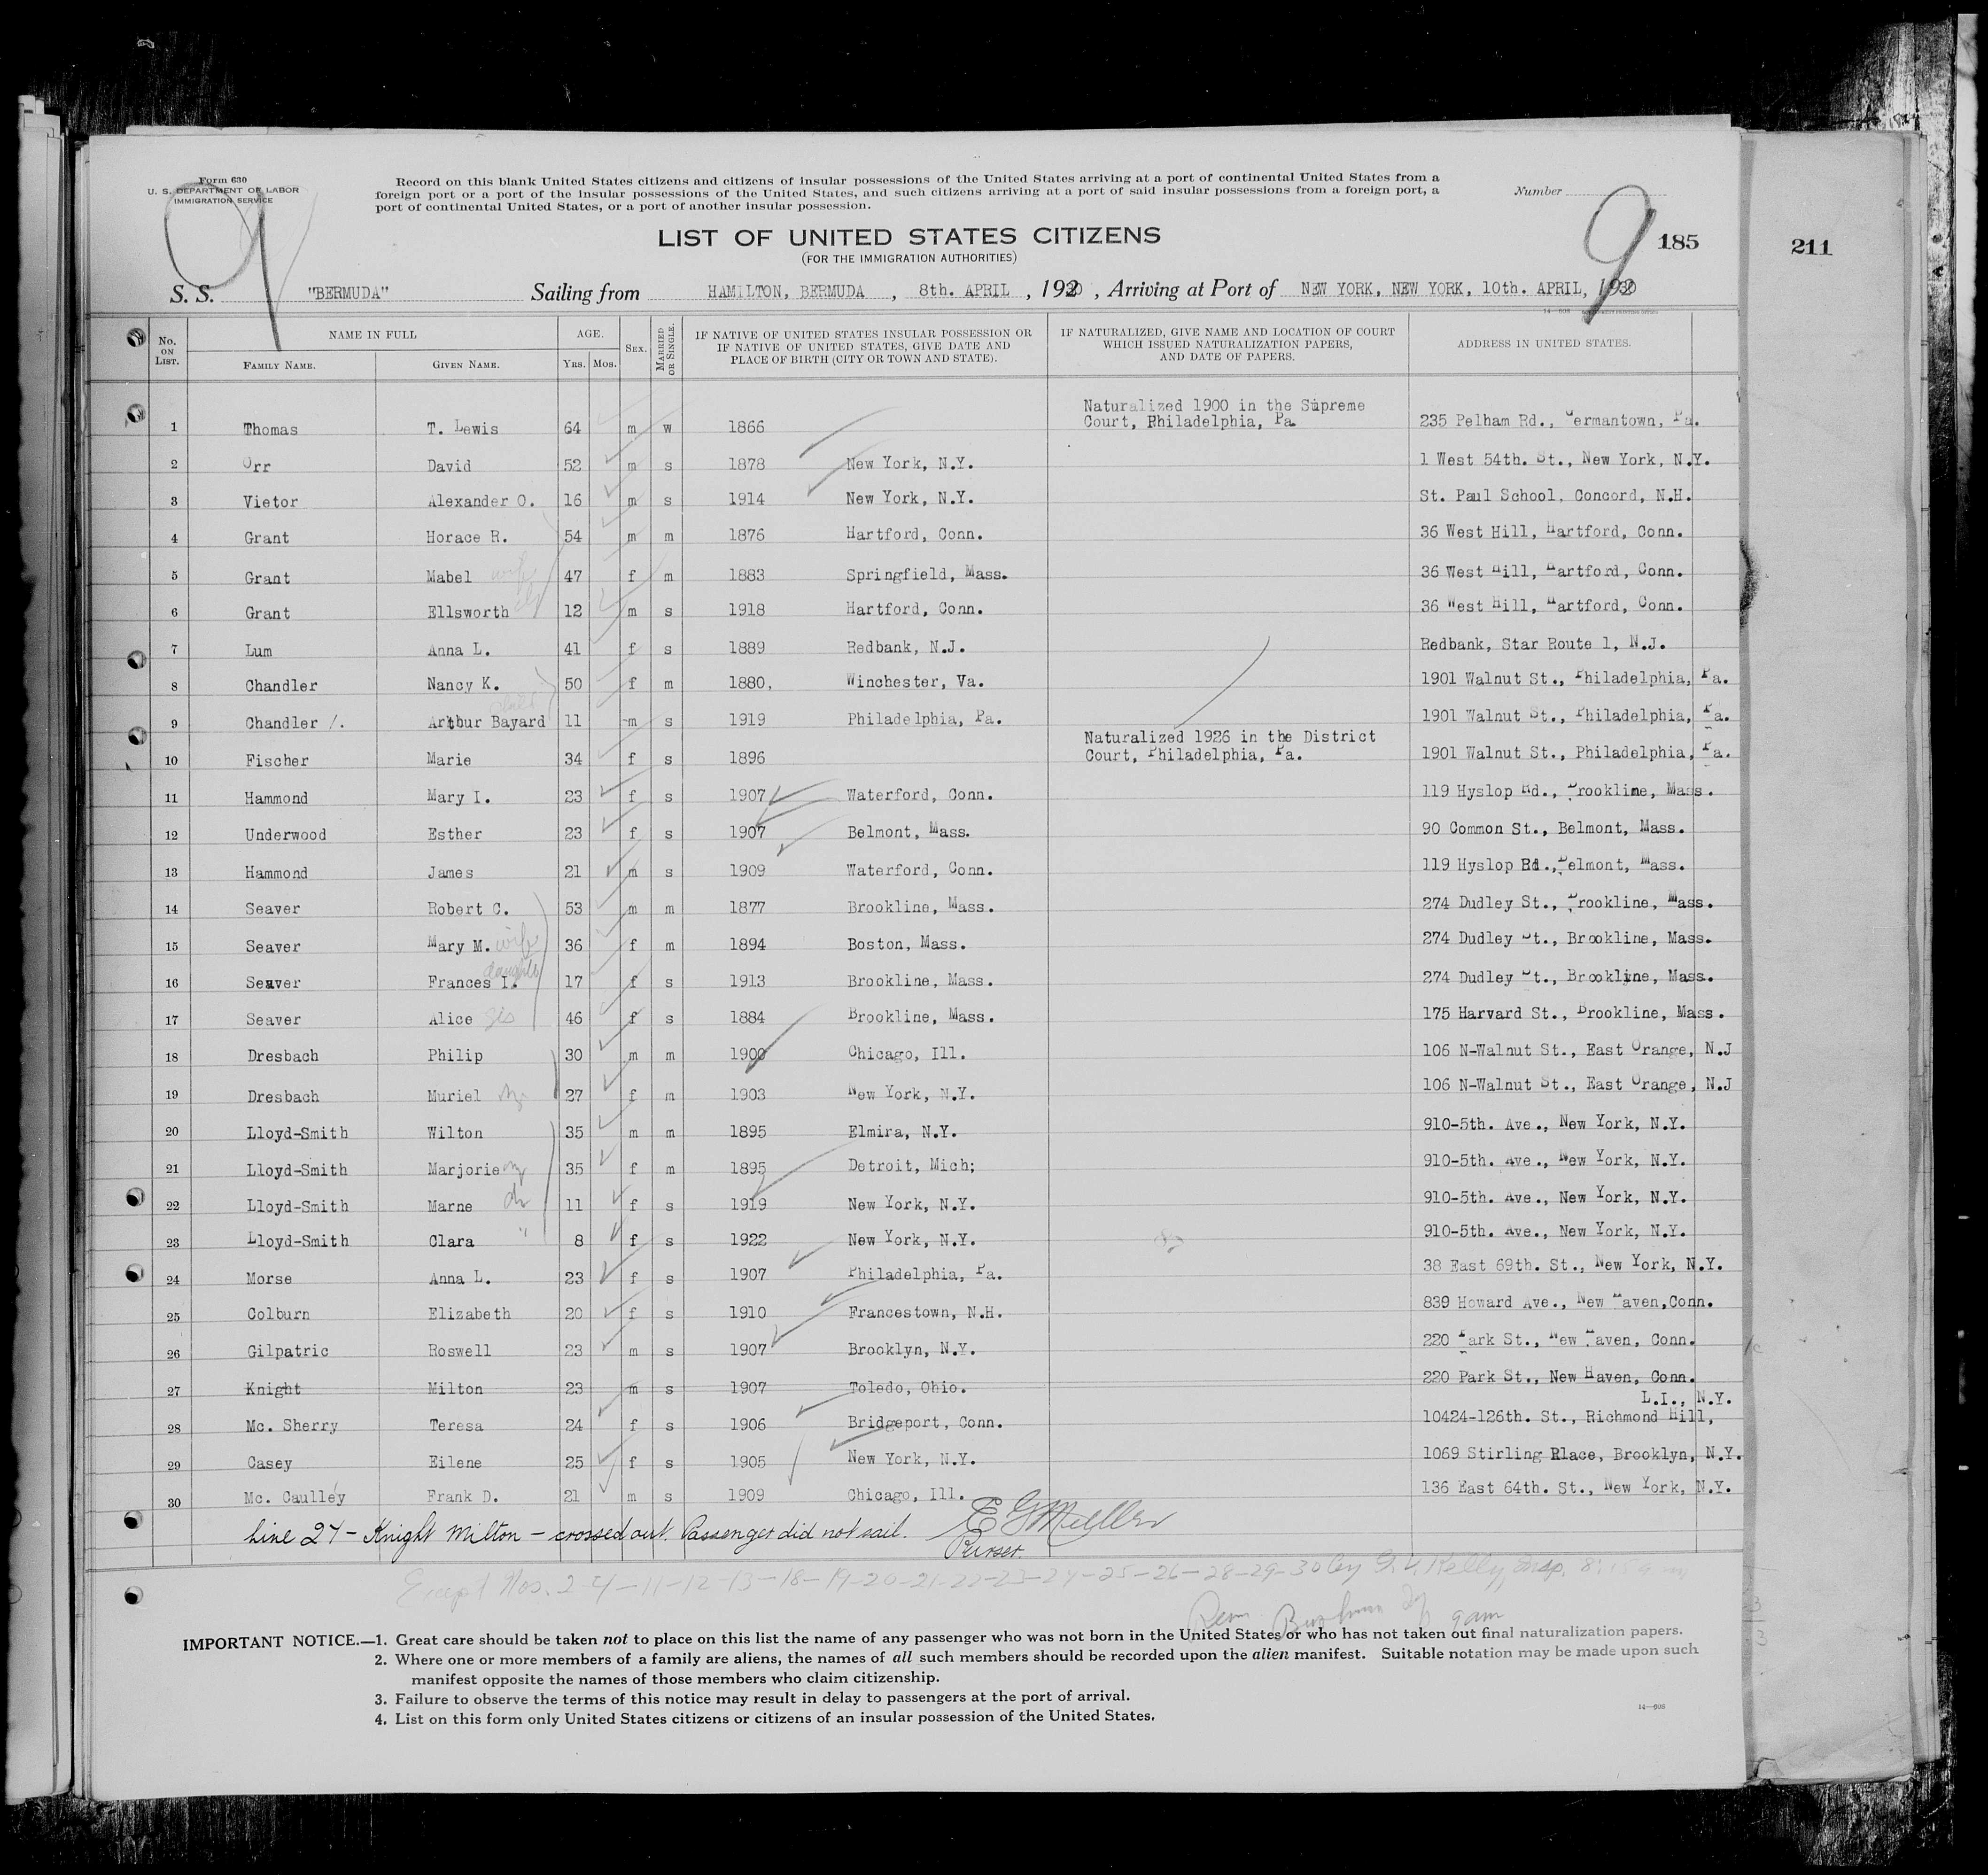 Form 630
U. S. DEPARTMENT OF LABOR
IMMIGRATION SERVICE
Record on this blank United States citizens and citizens of insular possessions of the United States arriving at a port of continental United States from a
foreign port or a port of the insular possessions of the United States, and such citizens arriving at a port of said insular possessions from a foreign port, a
port of continental United States, or a port of another insular possession.
Number
9
9
185
211
LIST OF UNITED STATES CITIZENS
(FOR THE IMMIGRATION AUTHORITIES)
S. S. "BERMUDA" Sailing from HAMILTON, BERMUDA, 8th. APRIL, 1930, Arriving at Port of NEW YORK, NEW YORK, 10th. APRIL, 1930
No. ON LIST. NAME IN FULL FAMILY NAME. GIVEN NAME. AGE. YRS. MOS. SEX. MARRIED OR SINGLE. IF NATIVE OF UNITED STATES INSULAR POSSESSION OR IF NATIVE OF UNITED STATES, GIVE DATE AND PLACE OF BIRTH (CITY OR TOWN AND STATE). IF NATURALIZED, GIVE NAME AND LOCATION OF COURT WHICH ISSUED NATURALIZATION PAPERS, AND DATE OF PAPERS. ADDRESS IN UNITED STATES.
1 Thomas T. Lewis 64 m w 1866 Naturalized 1900 in the Supreme Court, Philadelphia, Pa. 235 Pelham Rd., Germantown, Pa.
2 Orr David 52 m s 1878 New York, N.Y. 1 West 54th. St., New York, N.Y.
3 Vietor Alexander O. 16 m s 1914 New York, N.Y. St. Paul School, Concord, N.H.
4 Grant Horace R. 54 m m 1876 Hartford, Conn. 36 West Hill, Hartford, Conn.
5 Grant Mabel wife 47 f m 1883 Springfield, Mass. 36 West Hill, Hartford, Conn.
6 Grant Ellsworth 12 m s 1918 Hartford, Conn. 36 West Hill, Hartford, Conn.
7 Lum Anna L. 41 f s 1889 Redbank, N.J. Redbank, Star Route 1, N.J.
8 Chandler Nancy K. 50 f m 1880, Winchester, Va. 1901 Walnut St., Philadelphia, Pa.
9 Chandler /. Arthur Bayard 11 m s 1919 Philadelphia, Pa. 1901 Walnut St., Philadelphia, Pa.
10 Fischer Marie 34 f s 1896 Naturalized 1926 in the District Court, Philadelphia, Pa. 1901 Walnut St., Philadelphia, Pa.
11 Hammond Mary I. 23 f s 1907 Waterford, Conn. 119 Hyslop Rd., Brookline, Mass.
12 Underwood Esther 23 f s 1907 Belmont, Mass. 90 Common St., Belmont, Mass.
13 Hammond James 21 m s 1909 Waterford, Conn. 119 Hyslop Rd., Belmont, Mass.
14 Seaver Robert C. 53 m m 1877 Brookline, Mass. 274 Dudley St., Brookline, Mass.
15 Seaver Mary M. wife 36 f m 1894 Boston, Mass. 274 Dudley St., Brookline, Mass.
16 Seaver Frances I. daughter 17 f s 1913 Brookline, Mass. 274 Dudley St., Brookline, Mass.
17 Seaver Alice sis 46 f s 1884 Brookline, Mass. 175 Harvard St., Brookline, Mass.
18 Dresbach Philip 30 m m 1900 Chicago, Ill. 106 N-Walnut St., East Orange, N.J
19 Dresbach Muriel 27 f m 1903 New York, N.Y. 106 N-Walnut St., East Orange, N.J
20 Lloyd-Smith Wilton 35 m m 1895 Elmira, N.Y. 910-5th. Ave., New York, N.Y.
21 Lloyd-Smith Marjorie 35 f m 1895 Detroit, Mich; 910-5th. Ave., New York, N.Y.
22 Lloyd-Smith Marne 11 f s 1919 New York, N.Y. 910-5th. Ave., New York, N.Y.
23 Lloyd-Smith Clara " 8 f s 1922 New York, N.Y. 910-5th. Ave., New York, N.Y.
24 Morse Anna L. 23 f s 1907 Philadelphia, Pa. 38 East 69th. St., New York, N.Y.
25 Colburn Elizabeth 20 f s 1910 Francestown, N.H. 839 Howard Ave., New Haven, Conn.
26 Gilpatric Roswell 23 m s 1907 Brooklyn, N.Y. 220 Park St., New Haven, Conn.
27 Knight Milton 23 m s 1907 Toledo, Ohio. 220 Park St., New Haven, Conn.
28 Mc. Sherry Teresa 24 f s 1906 Bridgeport, Conn. 10424-126th. St., Richmond Hill, L.I., N.Y.
29 Casey Eilene 25 f s 1905 New York, N.Y. 1069 Stirling Place, Brooklyn, N.Y.
30 Mc. Caulley Frank D. 21 m s 1909 Chicago, Ill. 136 East 64th. St., New York, N.Y.
Line 27 - Knight Milton - crossed out. Passenger did not sail. E G Mueller
Purser.
Except Nos. 2-4-11-12-13-18-19-20-21-22-23-24-25-26-28-29-30 by Kelly, Insp. 8:15 am
9 am
IMPORTANT NOTICE.—1. Great care should be taken not to place on this list the name of any passenger who was not born in the United States or who has not taken out final naturalization papers.
2. Where one or more members of a family are aliens, the names of all such members should be recorded upon the alien manifest. Suitable notation may be made upon such
manifest opposite the names of those members who claim citizenship.
3. Failure to observe the terms of this notice may result in delay to passengers at the port of arrival.
4. List on this form only United States citizens or citizens of an insular possession of the United States.
14—608